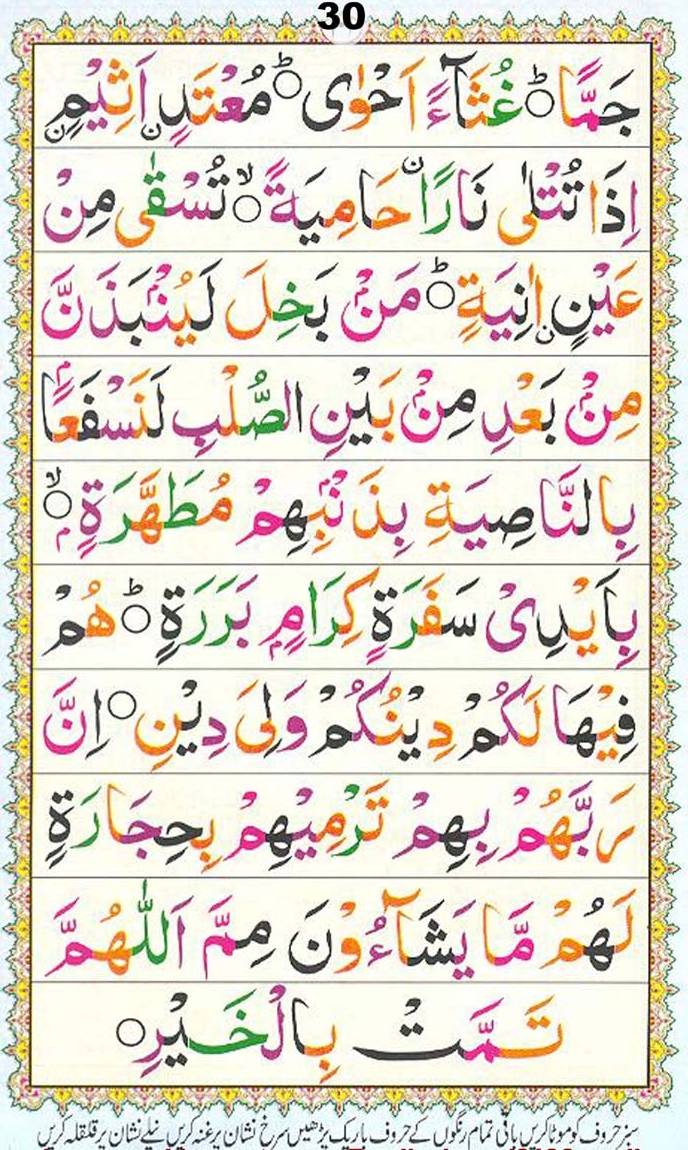 30
جَمًّا ○ؕ غُثَآءً اَحْوٰى ○ؕ مُعْتَدٍ اَثِيْمٍ ن ن
اِذَا تُتْلٰى نَارًا ن حَامِيَةً ○ۙ تُسْقٰى مِنْ
عَيْنٍ ن اٰنِيَةٍ ○ؕ مَنْۢ بَخِلَ لَيُنْۢبَذَنَّ
مِنْۢ بَعْدِ مِنْۢ بَيْنِ الصُّلْبِ لَنَسْفَعًاۢ
بِالنَّاصِيَةِ بِذَنْۢبِهِمْ مُطَهَّرَةٍۭ ○ۙ
بِاَيْدِىْ سَفَرَةٍ كِرَامٍۭ بَرَرَةٍ ○ؕ هُمْ
فِيْهَا لَكُمْ دِيْنُكُمْ وَلِىَ دِيْنِ ○ اِنَّ
رَبَّهُمْ بِهِمْ تَرْمِيْهِمْ بِحِجَارَةٍ
لَهُمْ مَّا يَشَآءُوْنَ مِمَّ اَللّٰهُمَّ
تَمَّتْ بِالْخَيْرِ ○
سبز حروف کو موٹا کریں باقی تمام رنگوں کے حروف باریک پڑھیں سرخ نشان پر غنہ کریں نیلے نشان پر قلقلہ کریں